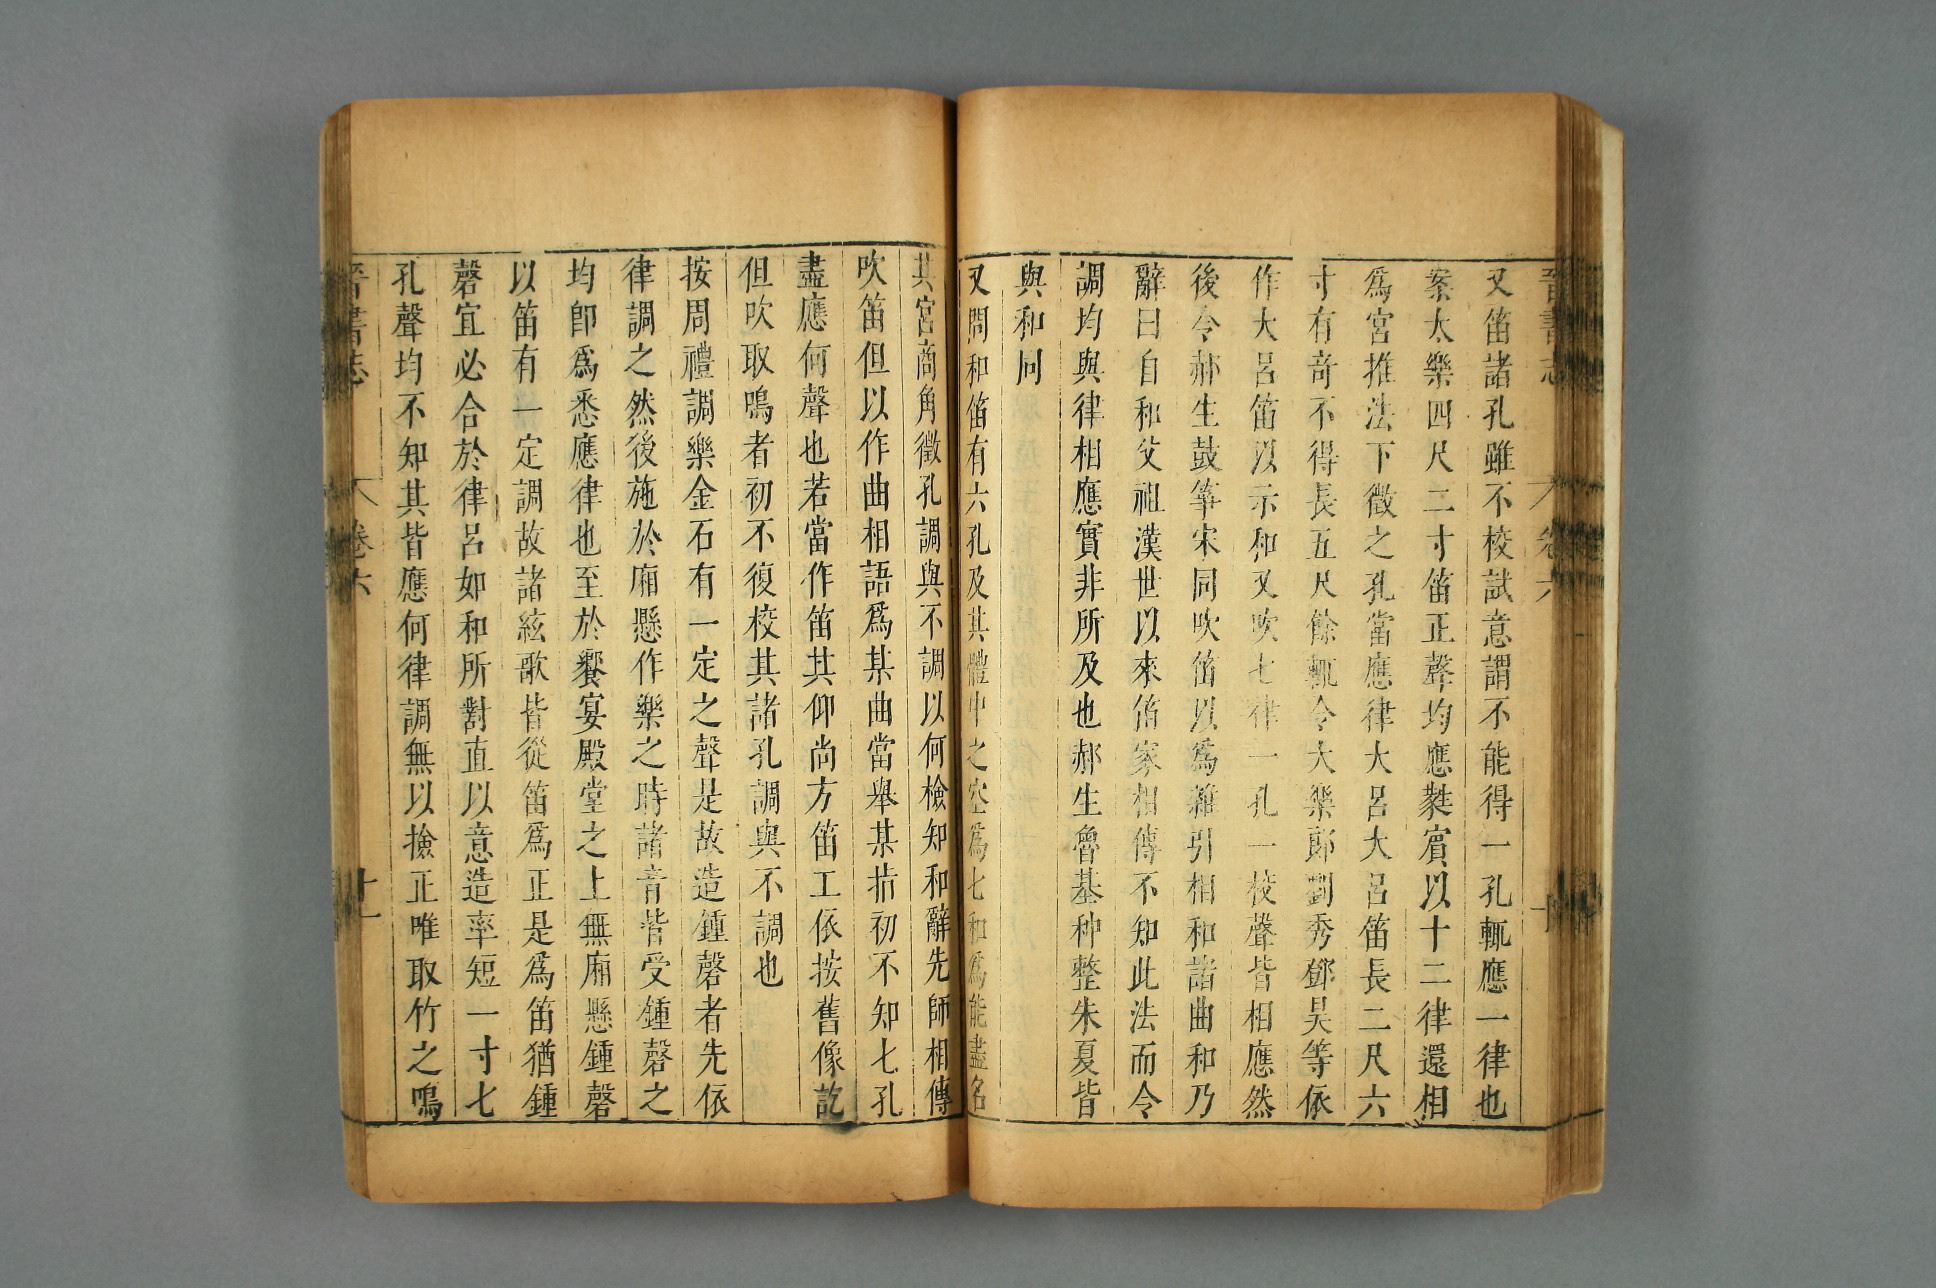 晉書志 卷六 十
又笛諸孔雖不校試意謂不能得一孔輒應一律也
案太樂四尺二寸笛正聲均應蕤賓以十二律還相
爲宮推法下徵之孔當應律大呂大呂笛長二尺六
寸有竒不得長五尺餘輒令大樂郎劉秀鄧昊等依
作大呂笛以示和又吹七律一孔一校聲皆相應然
後令郝生鼓箏宋同吹笛以爲雜引相和諸曲和乃
辭曰自和父祖漢世以來笛家相傳不知此法而令
調均與律相應實非所及也郝生魯基种整朱夏皆
與和同
又問和笛有六孔及其體中之空爲七和爲能盡名
其宮商角徵孔調與不調以何檢知和辭先師相傳
吹笛但以作曲相語爲某曲當舉某指初不知七孔
盡應何聲也若當作笛其仰尚方笛工依按舊像訖
但吹取鳴者初不復校其諸孔調與不調也
按周禮調樂金石有一定之聲是故造鍾磬者先依
律調之然後施於廂懸作樂之時諸音皆受鍾磬之
均卽爲悉應律也至於饗宴殿堂之上無廂懸鍾磬
以笛有一定調故諸絃歌皆從笛爲正是爲笛猶鍾
磬宜必合於律呂如和所對直以意造率短一寸七
孔聲均不知其皆應何律調無以撿正唯取竹之鳴
晉書志 卷六 十一